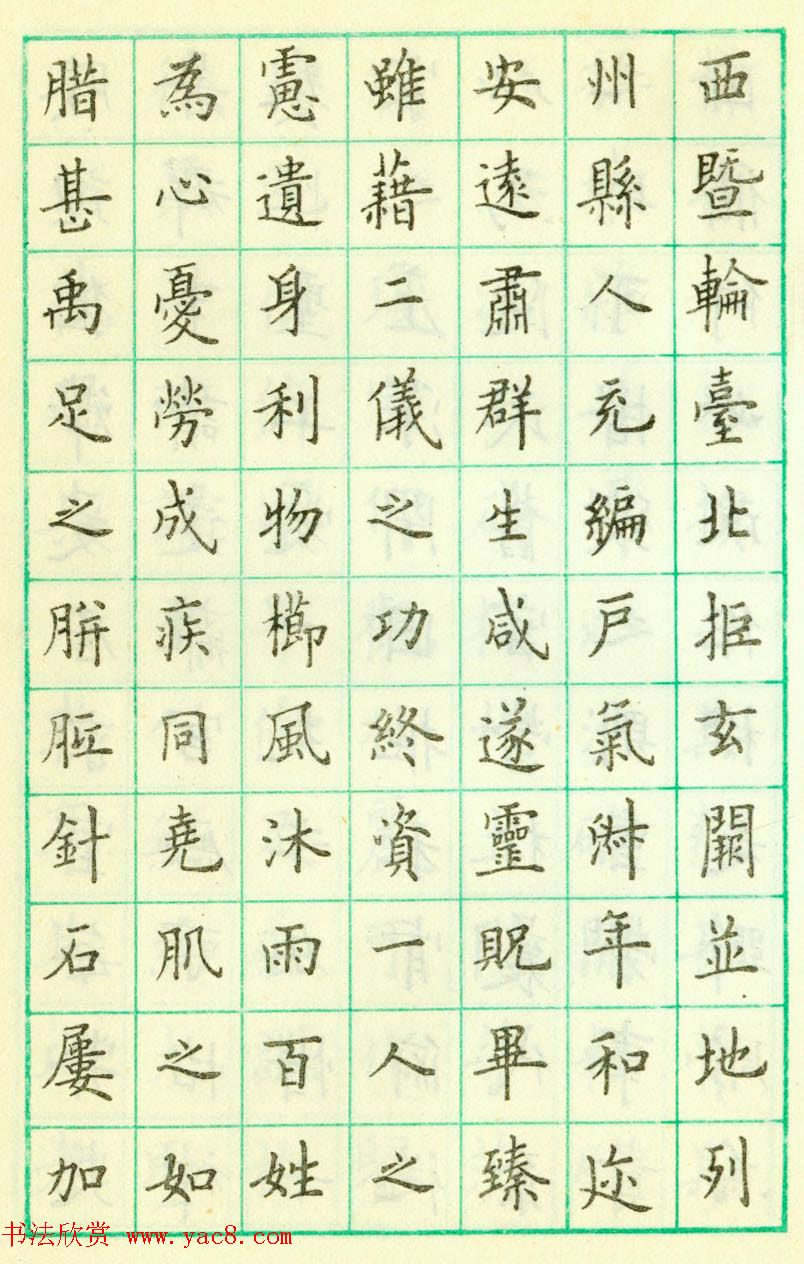 西暨輪臺北拒玄闕並地列
州縣人充編戶氣淑年和迩
安遠肅群生咸遂靈貺畢臻
雖藉二儀之功終資一人之
慮遺身利物櫛風沐雨百姓
為心憂勞成疾同堯肌之如
腊甚禹足之胼胝針石屢加
书法欣赏 www.yac8.com